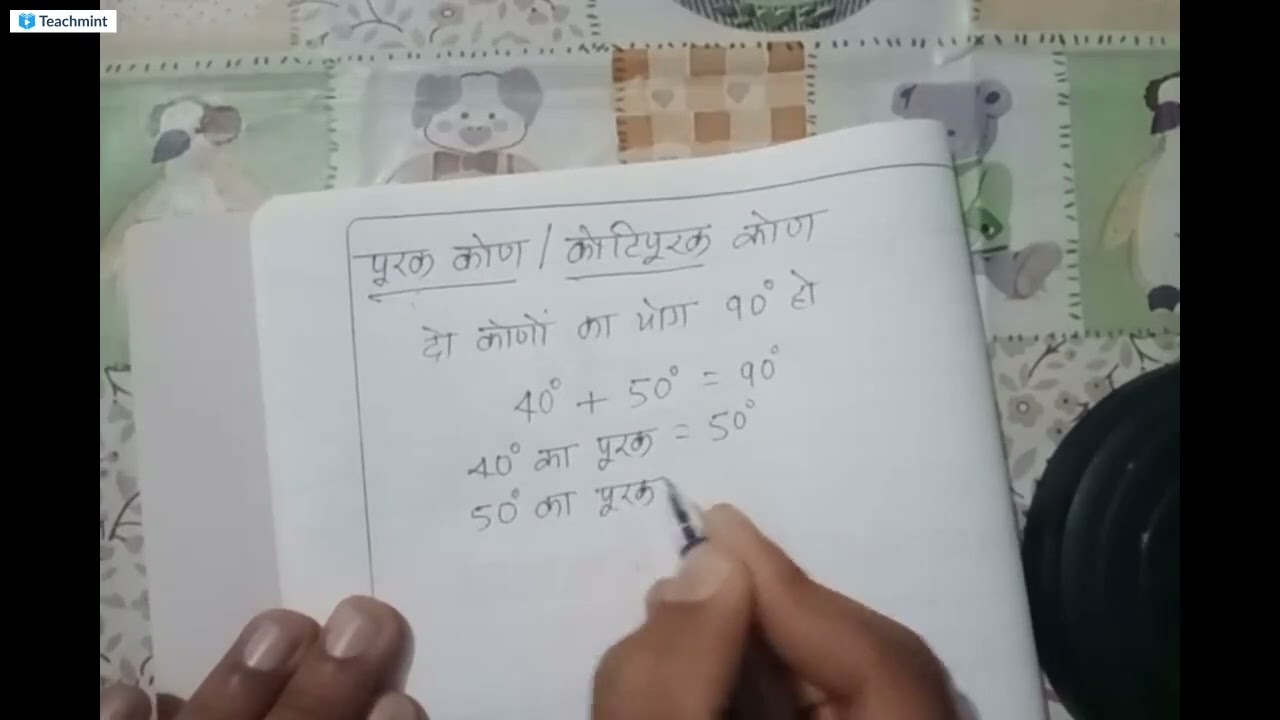 Teachmint
पूरक कोण / कोटिपूरक कोण
दो कोणों का योग 90° हो
40° + 50° = 90°
40° का पूरक = 50°
50° का पूरक